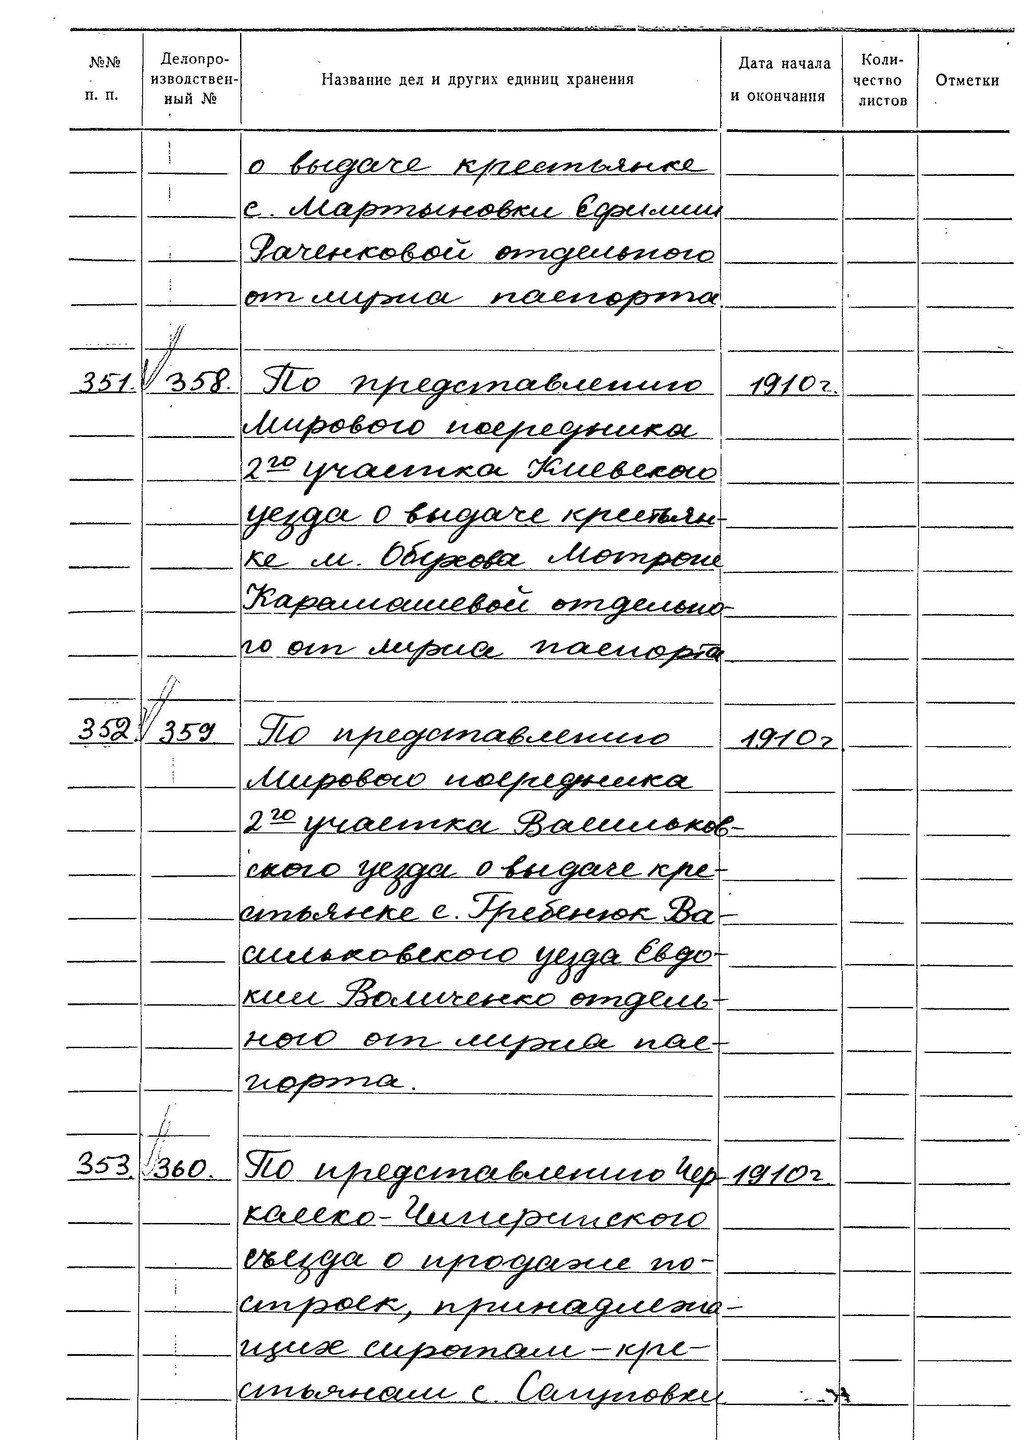 №№ п. п. Делопроизводственный № Название дел и других единиц хранения Дата начала и окончания Количество листов Отметки
о выдаче крестьянке
с. Мартыновки Ефимии
Раченковой отдельного
от мужа паспорта
351. 358. По представлению 1910 г.
Мирового посредника
2го участка Киевского
уезда о выдаче крестьян-
ке м. Обухова Мотроне
Карамашевой отдельно-
го от мужа паспорта
352. 359 По представлению 1910 г
Мирового посредника
2го участка Васильков-
ского уезда о выдаче кре-
стьянке с. Гребенюк Ва-
сильковского уезда Евдо-
кии Воличенко отдель-
ного от мужа пас-
порта.
353. 360. По представлению Чер- 1910 г.
касско-Чигиринского
съезда о продаже по-
строек, принадлежа-
щих сиротам-кре-
стьянам с. Сагуновки